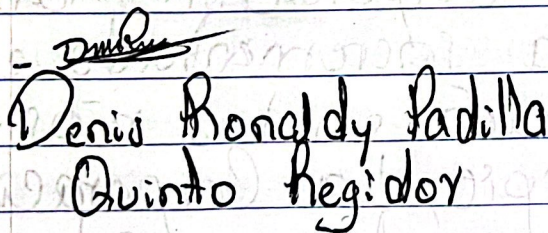 Denis Ronaldy Padilla
Quinto Regidor